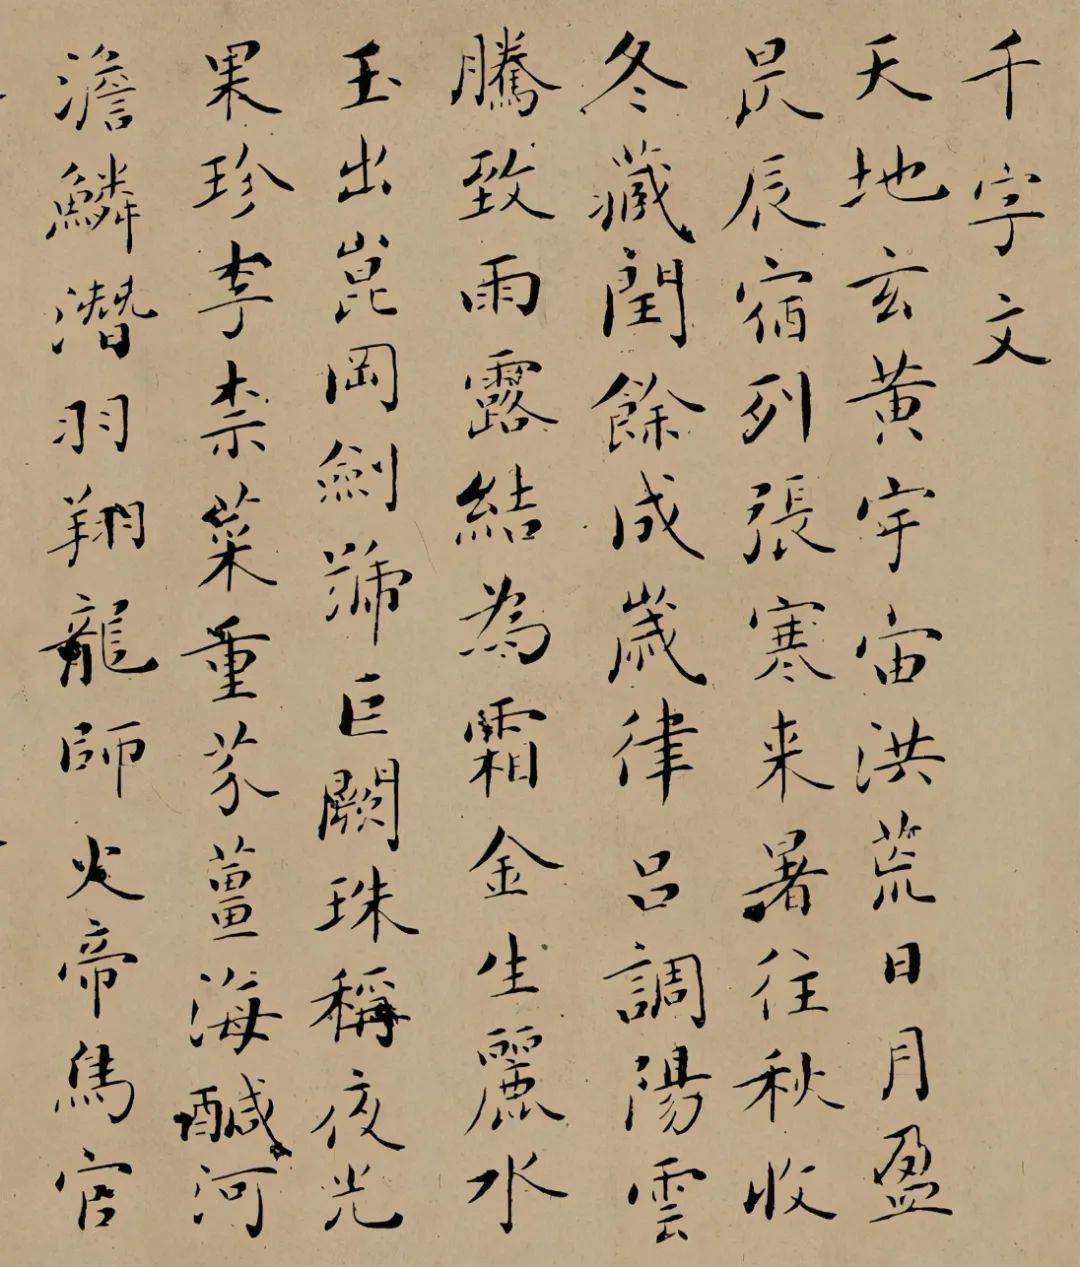 千字文
天地玄黄宇宙洪荒日月盈
昃辰宿列張寒来暑往秋收
冬藏閏餘成歲律呂調陽雲
騰致雨露結為霜金生麗水
玉出崑岡劍號巨闕珠稱夜光
果珍李柰菜重芥薑海鹹河
澹鱗潛羽翔龍師火帝鳥官